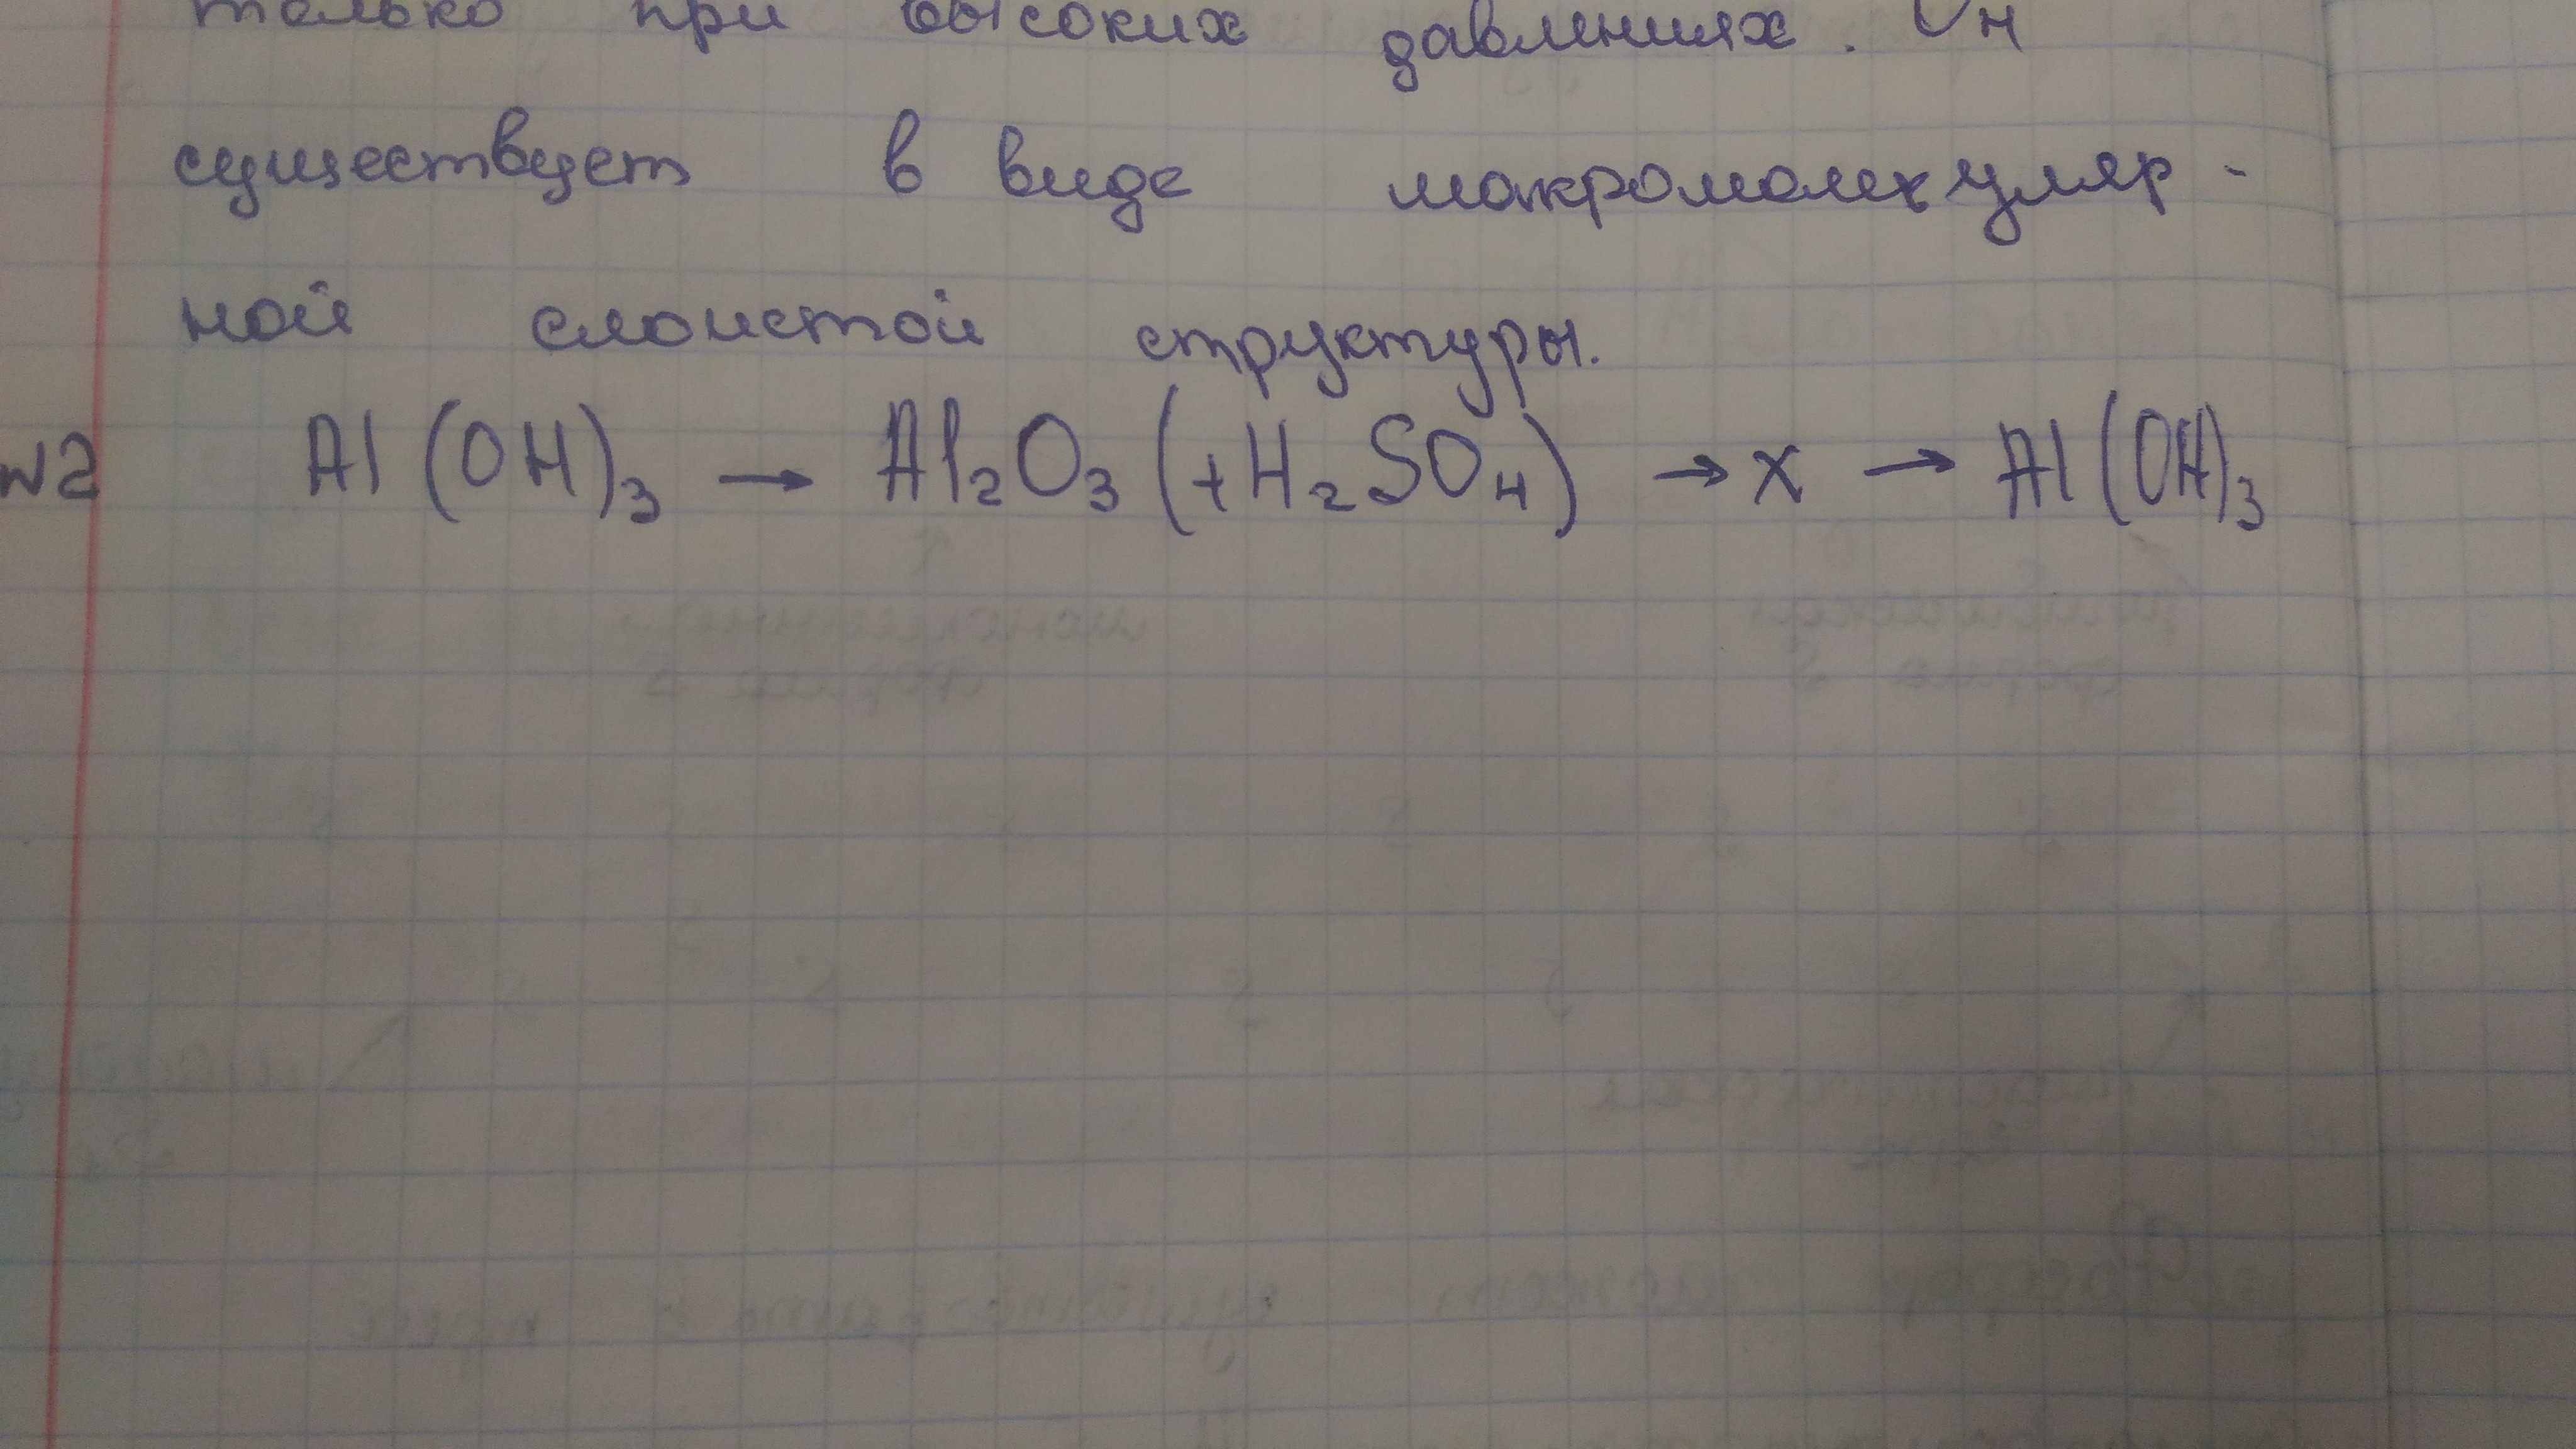 только при высоких давлениях. Он
существует в виде макромолекуляр-
ной слоистой структуры.
№2 Al(OH)₃ → Al₂O₃(+H₂SO₄) → x → Al(OH)₃